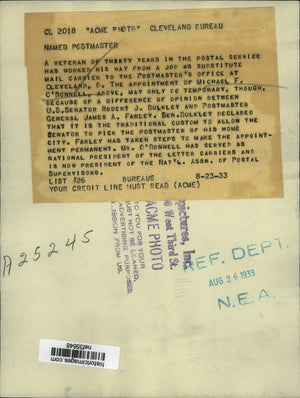 CL 2018 "ACME PHOTO" CLEVELAND BUREAU
NAMED POSTMASTER
A VETERAN OF THIRTY YEARS IN THE POSTAL SERVICE
HAS WORKED HIS WAY FROM A JOB AS SUBSTITUTE
MAIL CARRIER TO THE POSTMASTER'S OFFICE AT
CLEVELAND, O. THE APPOINTMENT OF MICHAEL F.
O'DONNELL, ABOVE, MAY ONLY BE TEMPORARY, THOUGH,
BECAUSE OF A DIFFERENCE OF OPINION BETWEEN
U.S. SENATOR ROBERT J. BULKLEY AND POSTMASTER
GENERAL JAMES A. FARLEY. SEN. BULKLEY DECLARED
THAT IT IS THE TRADITIONAL CUSTOM TO ALLOW THE
SENATOR TO PICK THE POSTMASTER OF HIS HOME
CITY. FARLEY HAS TAKEN STEPS TO MAKE THE APPOINT-
MENT PERMANENT. MR. O'DONNELL HAS SERVED AS
NATIONAL PRESIDENT OF THE LETTER CARRIERS AND
IS NOW PRESIDENT OF THE NAT'L. ASSN. OF POSTAL
SUPERVISORS.
LIST 126 BUREAUS 8-23-33
YOUR CREDIT LINE MUST READ (ACME)
A25245
pictures, Inc.
West Third St.
ACME PHOTO
TO YOU FOR YOUR
MUST NOT BE LOANED,
ADVERTISING PURPOSES
FROM US.
REF. DEPT.
AUG 26 1933
N.E.A.
historicimages.com
nef35648